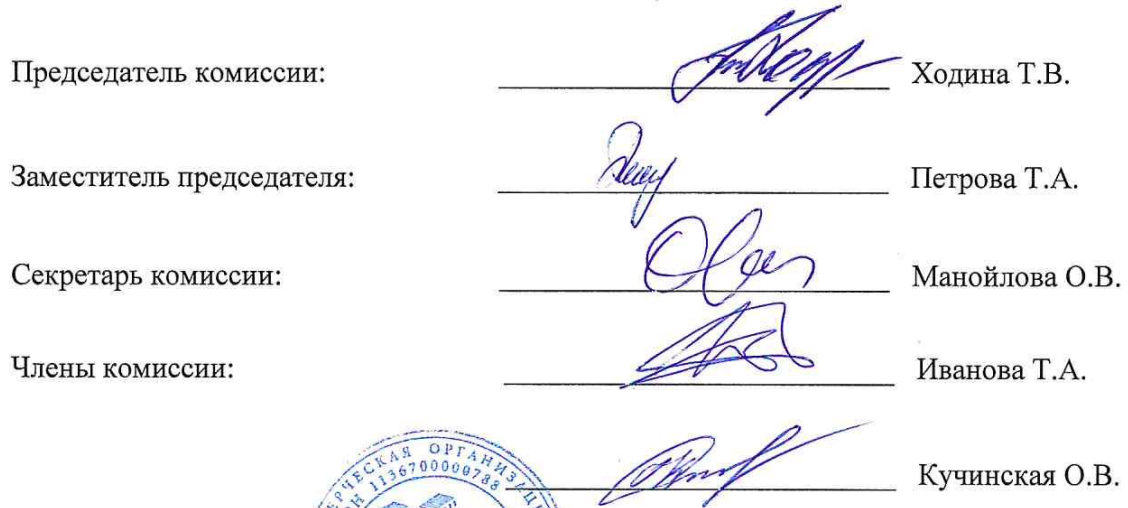 Председатель комиссии: Ходина Т.В.
Заместитель председателя: Петрова Т.А.
Секретарь комиссии: Манойлова О.В.
Члены комиссии: Иванова Т.А.
Кучинская О.В.
ОРГАНИЗАЦ
1136700000788